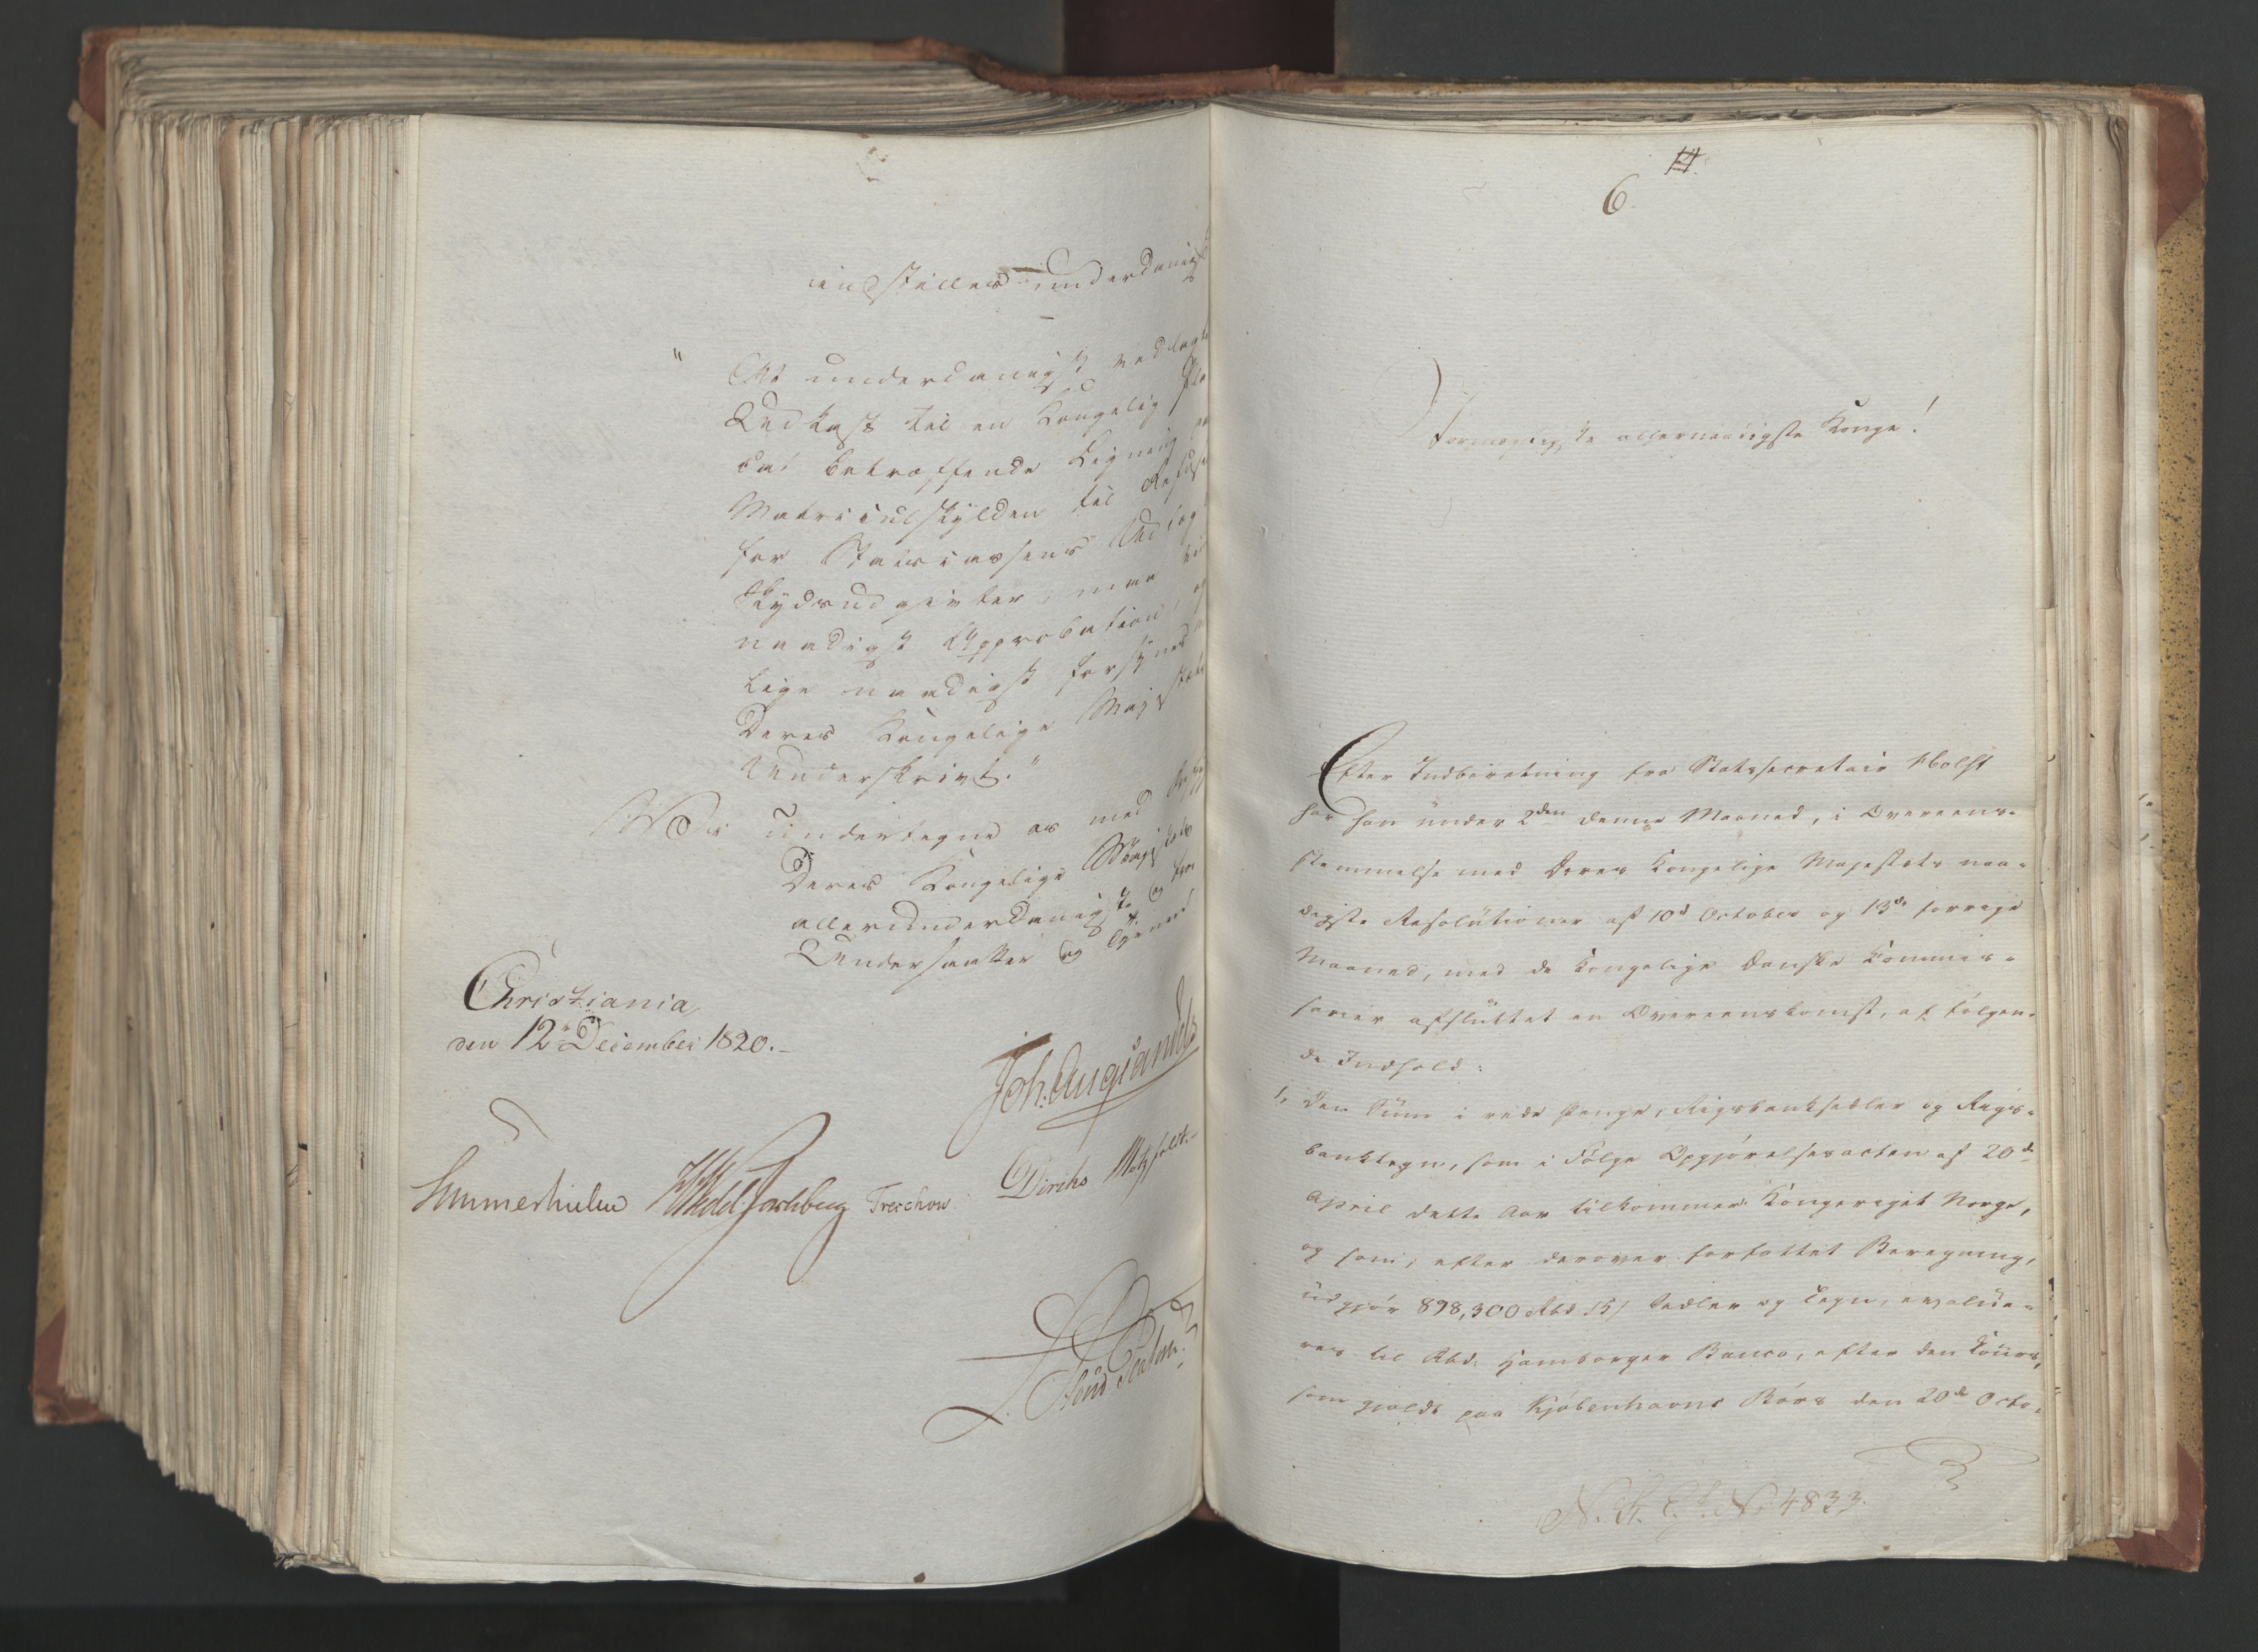 indstilles underdanigst
" At underdanigst vedlagte
Udkast til en Kongelig Pla-
cat betræffende Ligning paa
Matriculskylden til Refusion
for Statscassens Udlæg
Skydsudgivter, maa
naadigst Approbation, og
lige naadigst forsynes
Deres Kongelige Majestæts
Underskrivt."
Vi undertegne os med
Deres Kongelige Majestæts
allerunderdanigste og
Undersaatter og Tjenere
Christiania,
den 12te December 1820.
Sommerhielm Wedel Jarlsberg Treschow
Diriks Motzfeldt.
6.
Stormægtigste allernaadigste Konge!
Efter Indberetning fra Statssecretair Holst
har han under 2den denne Maaned, i Overeens-
stemmelse med Deres Kongelige Majestæts naa-
digste Resolutioner af 10de October og 13de forrige
Maaned, med de Kongelige Danske Kommis-
sairer afsluttet en Overeenskomst, af følgen-
de Indhold:
1, Den Sum i rede Penge, Rigsbanksedler og Rigs-
banktegn, som i Følge Opgjørelsesacten af 20de
April dette Aar tilkommer Kongeriget Norge,
og som, efter derover forfattet Beregning,
udgjør 898,300 Rbd Sedler og Tegn, evalue-
res til Rbd: Hamborger Banco, efter den Cours,
som gjaldt paa Kjøbenhavns Børs den 20de Octo-
No 4833.